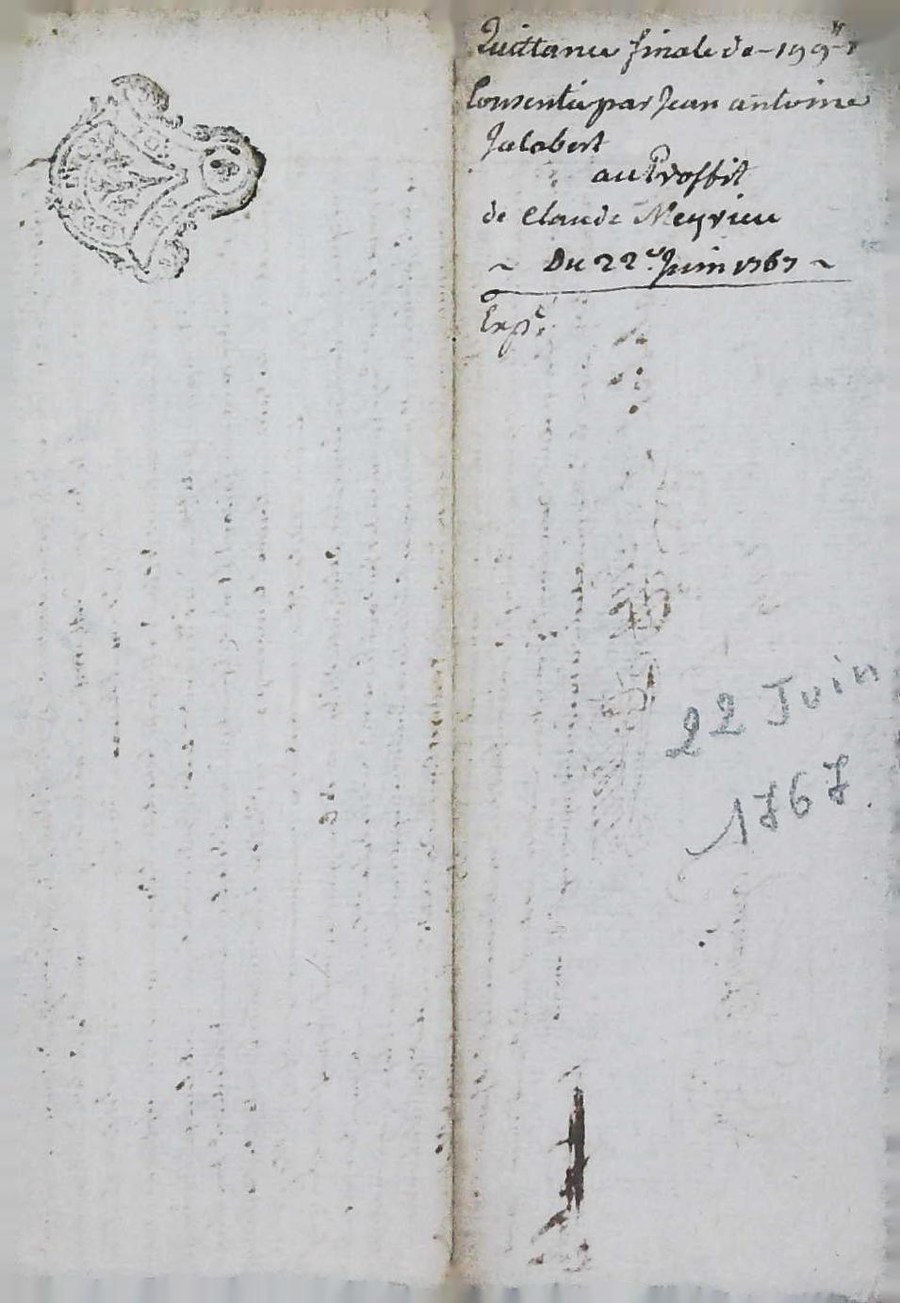 Quittance finale de 199tt
Consentie par Jean antoine
Jalabert
au Proffit
de Claude Meyrieu
~ Du 22e Juin 1767 ~
Expe
22 Juin
1767